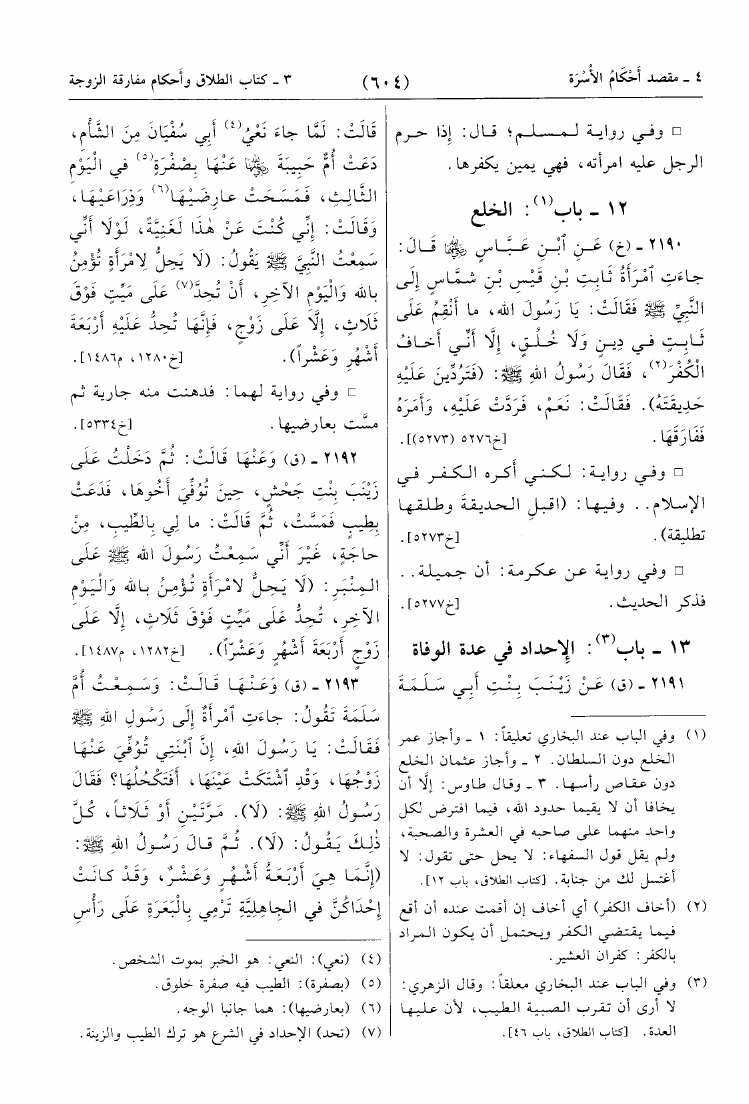 ٤ ـ مقصد أَحْكَامُ الأُسْرَة
(٦٠٤)
٣ ـ كتاب الطلاق وأحكام مفارقة الزوجة
□ وفي رواية لمسلم؛ قال: إذا حرم
الرجل عليه امرأته، فهي يمين يكفرها.
١٢ ـ باب(١): الخلع
٢١٩٠ ـ (خ) عَنِ ٱبْنِ عَبَّاسٍ ﵄ قَالَ:
جاءَتِ ٱمْرَأَةُ ثَابِتِ بْنِ قَيْسِ بْنِ شَمَّاسٍ إِلَى
النَّبِيِّ ﷺ فَقَالَتْ: يَا رَسُولَ الله، ما أَنْقِمُ عَلَى
ثَابِتٍ في دِينٍ وَلَا خُلُقٍ، إِلَّا أَنِّي أَخافُ
الْكُفْرَ(٢)، فَقَالَ رَسُولُ اللهِ ﷺ: (فَتَرُدِّينَ عَلَيْهِ
حَدِيقَتَهُ). فَقَالَتْ: نَعَمْ، فَرَدَّتْ عَلَيْهِ، وَأَمَرَهُ
فَفَارَقَهَا. [خ٥٢٧٦ (٥٢٧٣)].
□ وفي رواية: لكني أكره الكفر في
الإسلام.. وفيها: (اقبل الحديقة وطلقها
تطليقة). [خ٥٢٧٣].
□ وفي رواية عن عكرمة: أن جميلة..
فذكر الحديث. [خ٥٢٧٧].
١٣ ـ باب(٣): الإحداد في عدة الوفاة
٢١٩١ ـ (ق) عَنْ زَيْنَبَ بِنْتِ أَبِي سَلَمَةَ
(١) وفي الباب عند البخاري تعليقاً: ١ ـ وأجاز عمر
الخلع دون السلطان. ٢ ـ وأجاز عثمان الخلع
دون عقاص رأسها. ٣ ـ وقال طاوس: إلَّا أن
يخافا أن لا يقيما حدود الله، فيما افترض لكل
واحد منهما على صاحبه في العشرة والصحبة،
ولم يقل قول السفهاء: لا يحل حتى تقول: لا
أغتسل لك من جنابة. [كتاب الطلاق، باب ١٢].
(٢) (أخاف الكفر) أي أخاف إن أقمت عنده أن أقع
فيما يقتضي الكفر ويحتمل أن يكون المراد
بالكفر: كفران العشير.
(٣) وفي الباب عند البخاري معلقاً: وقال الزهري:
لا أرى أن تقرب الصبية الطيب، لأن عليها
العدة. [كتاب الطلاق، باب ٤٦].
قَالَتْ: لَمَّا جاءَ نَعْيُ(٤) أَبِي سُفْيَانَ مِنَ الشَّأْمِ،
دَعَتْ أُمُّ حَبِيبَةَ ﵂ بِصُفْرَةٍ(٥) في الْيَوْمِ
الثَّالِثِ، فَمَسَحَتْ عارِضَيْهَا(٦) وَذِرَاعَيْهَا،
وَقَالَتْ: إِنِّي كُنْتُ عَنْ هٰذَا لَغَنِيَّةً، لَوْلَا أَنِّي
سَمِعْتُ النَّبِيَّ ﷺ يَقُولُ: (لَا يَحِلُّ لِامْرَأَةٍ تُؤْمِنُ
بالله وَالْيَوْمِ الآخِرِ، أَنْ تُحِدَّ(٧) عَلَى مَيِّتٍ فَوْقَ
ثَلَاثٍ، إِلَّا عَلَى زَوْجٍ، فَإِنَّهَا تُحِدُّ عَلَيْهِ أَرْبَعَةَ
أَشْهُرٍ وَعَشْراً). [خ١٢٨٠، م١٤٨٦].
□ وفي رواية لهما: فدهنت منه جارية ثم
مسَّت بعارضيها. [خ٥٣٣٤].
٢١٩٢ ـ (ق) وَعَنْهَا قَالَتْ: ثُمَّ دَخَلْتُ عَلَى
زَيْنَبَ بِنْتِ جَحْشٍ، حِينَ تُوُفِّيَ أَخُوهَا، فَدَعَتْ
بِطِيبٍ فَمَسَّتْ، ثُمَّ قَالَتْ: ما لِي بِالطِّيبِ، مِنْ
حاجَةٍ، غَيْرَ أَنِّي سَمِعْتُ رَسُولَ الله ﷺ عَلَى
المِنْبَرِ: (لَا يَحِلُّ لامْرَأَةٍ تُؤْمِنُ بالله وَالْيَوْمِ
الآخِرِ، تُحِدُّ عَلَى مَيِّتٍ فَوْقَ ثَلَاثٍ، إِلَّا عَلَى
زَوْجٍ أَرْبَعَةَ أَشْهُرٍ وَعَشْرًا). [خ١٢٨٢، م١٤٨٧].
٢١٩٣ ـ (ق) وَعَنْهَا قَالَتْ: وَسَمِعْتُ أُمَّ
سَلَمَةَ تَقُولُ: جاءَتِ ٱمْرَأَةٌ إِلَى رَسُولِ اللهِ ﷺ
فَقَالَتْ: يَا رَسُولَ الله، إِنَّ ٱبْنَتِي تُوُفِّيَ عَنْهَا
زَوْجُهَا، وَقَدِ ٱشْتَكَتْ عَيْنَهَا، أَفَتَكْحُلُهَا؟ فَقَالَ
رَسُولُ اللهِ ﷺ: (لَا). مَرَّتَيْنِ أَوْ ثَلَاثاً، كُلَّ
ذٰلِكَ يَقُولُ: (لَا). ثُمَّ قالَ رَسُولُ اللهِ ﷺ:
(إِنَّمَا هِيَ أَرْبَعَةُ أَشْهُرٍ وَعَشْرٌ، وَقَدْ كانَتْ
إِحْدَاكُنَّ في الجاهِلِيَّةِ تَرْمِي بِالْبَعَرَةِ عَلَى رَأْسِ
(٤) (نعي): النعي: هو الخبر بموت الشخص.
(٥) (بصفرة): الطيب فيه صفرة خلوق.
(٦) (بعارضيها): هما جانبا الوجه.
(٧) (تحد) الإحداد في الشرع هو ترك الطيب والزينة.